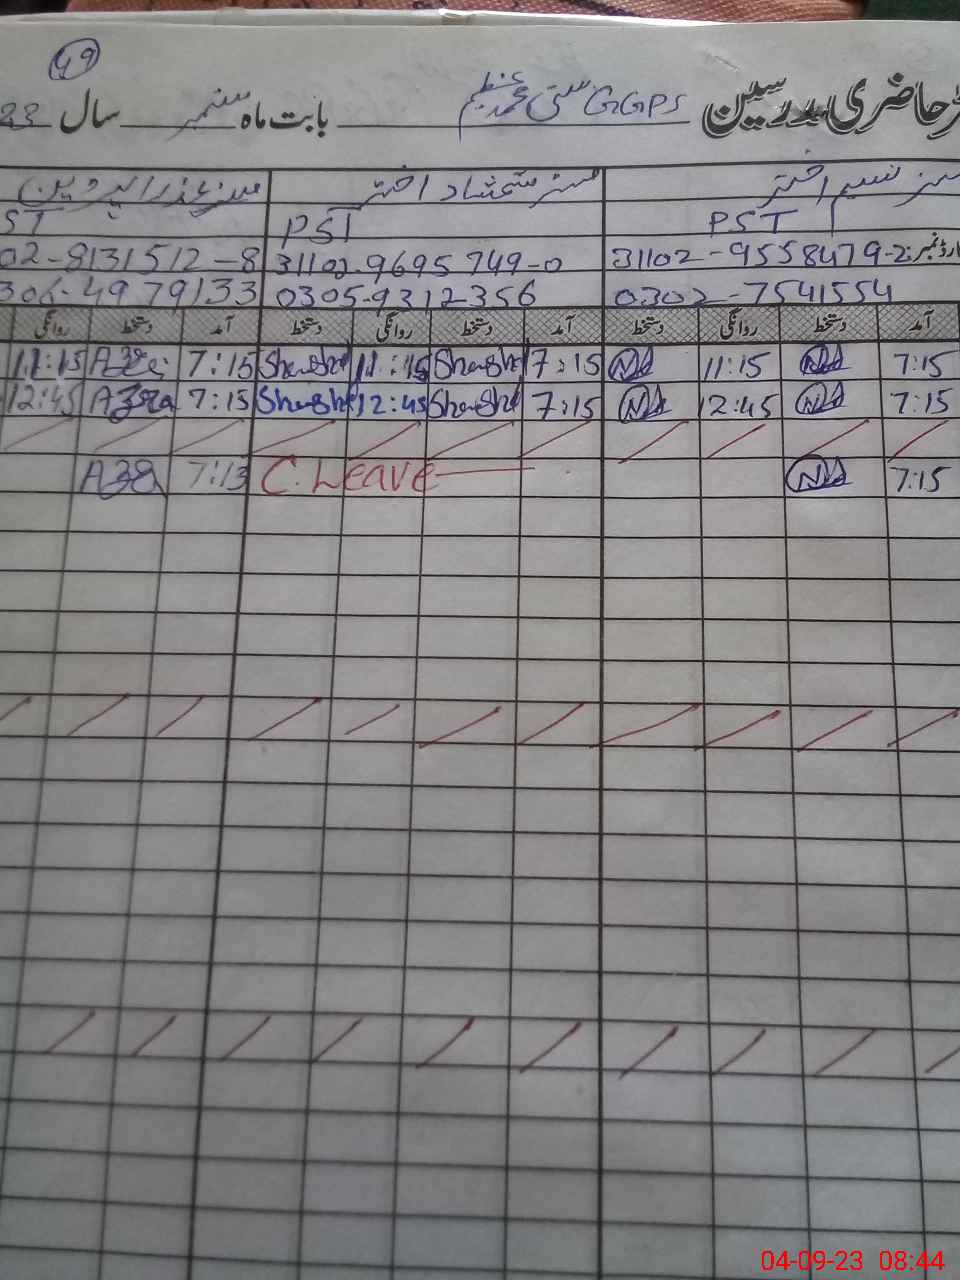 49
حاضری مدرسین GGPS بستی محمد عظیم بابت ماہ ستمبر سال 23
مسز نسیم اختر مسز شمشاد اختر مسز عذرا پروین
PST PST ST
31102-9558479-2 31102-9695749-0 02-8131512-8
0302-7541554 0305-9312356 306-4979133
آمد دستخط روانگی دستخط آمد دستخط روانگی دستخط آمد دستخط روانگی
7:15 11:15 7:15 11:15 7:15 11:15
7:15 12:45 7:15 12:45 7:15 12:45
7:15 C. Leave 7:13
04-09-23 08:44